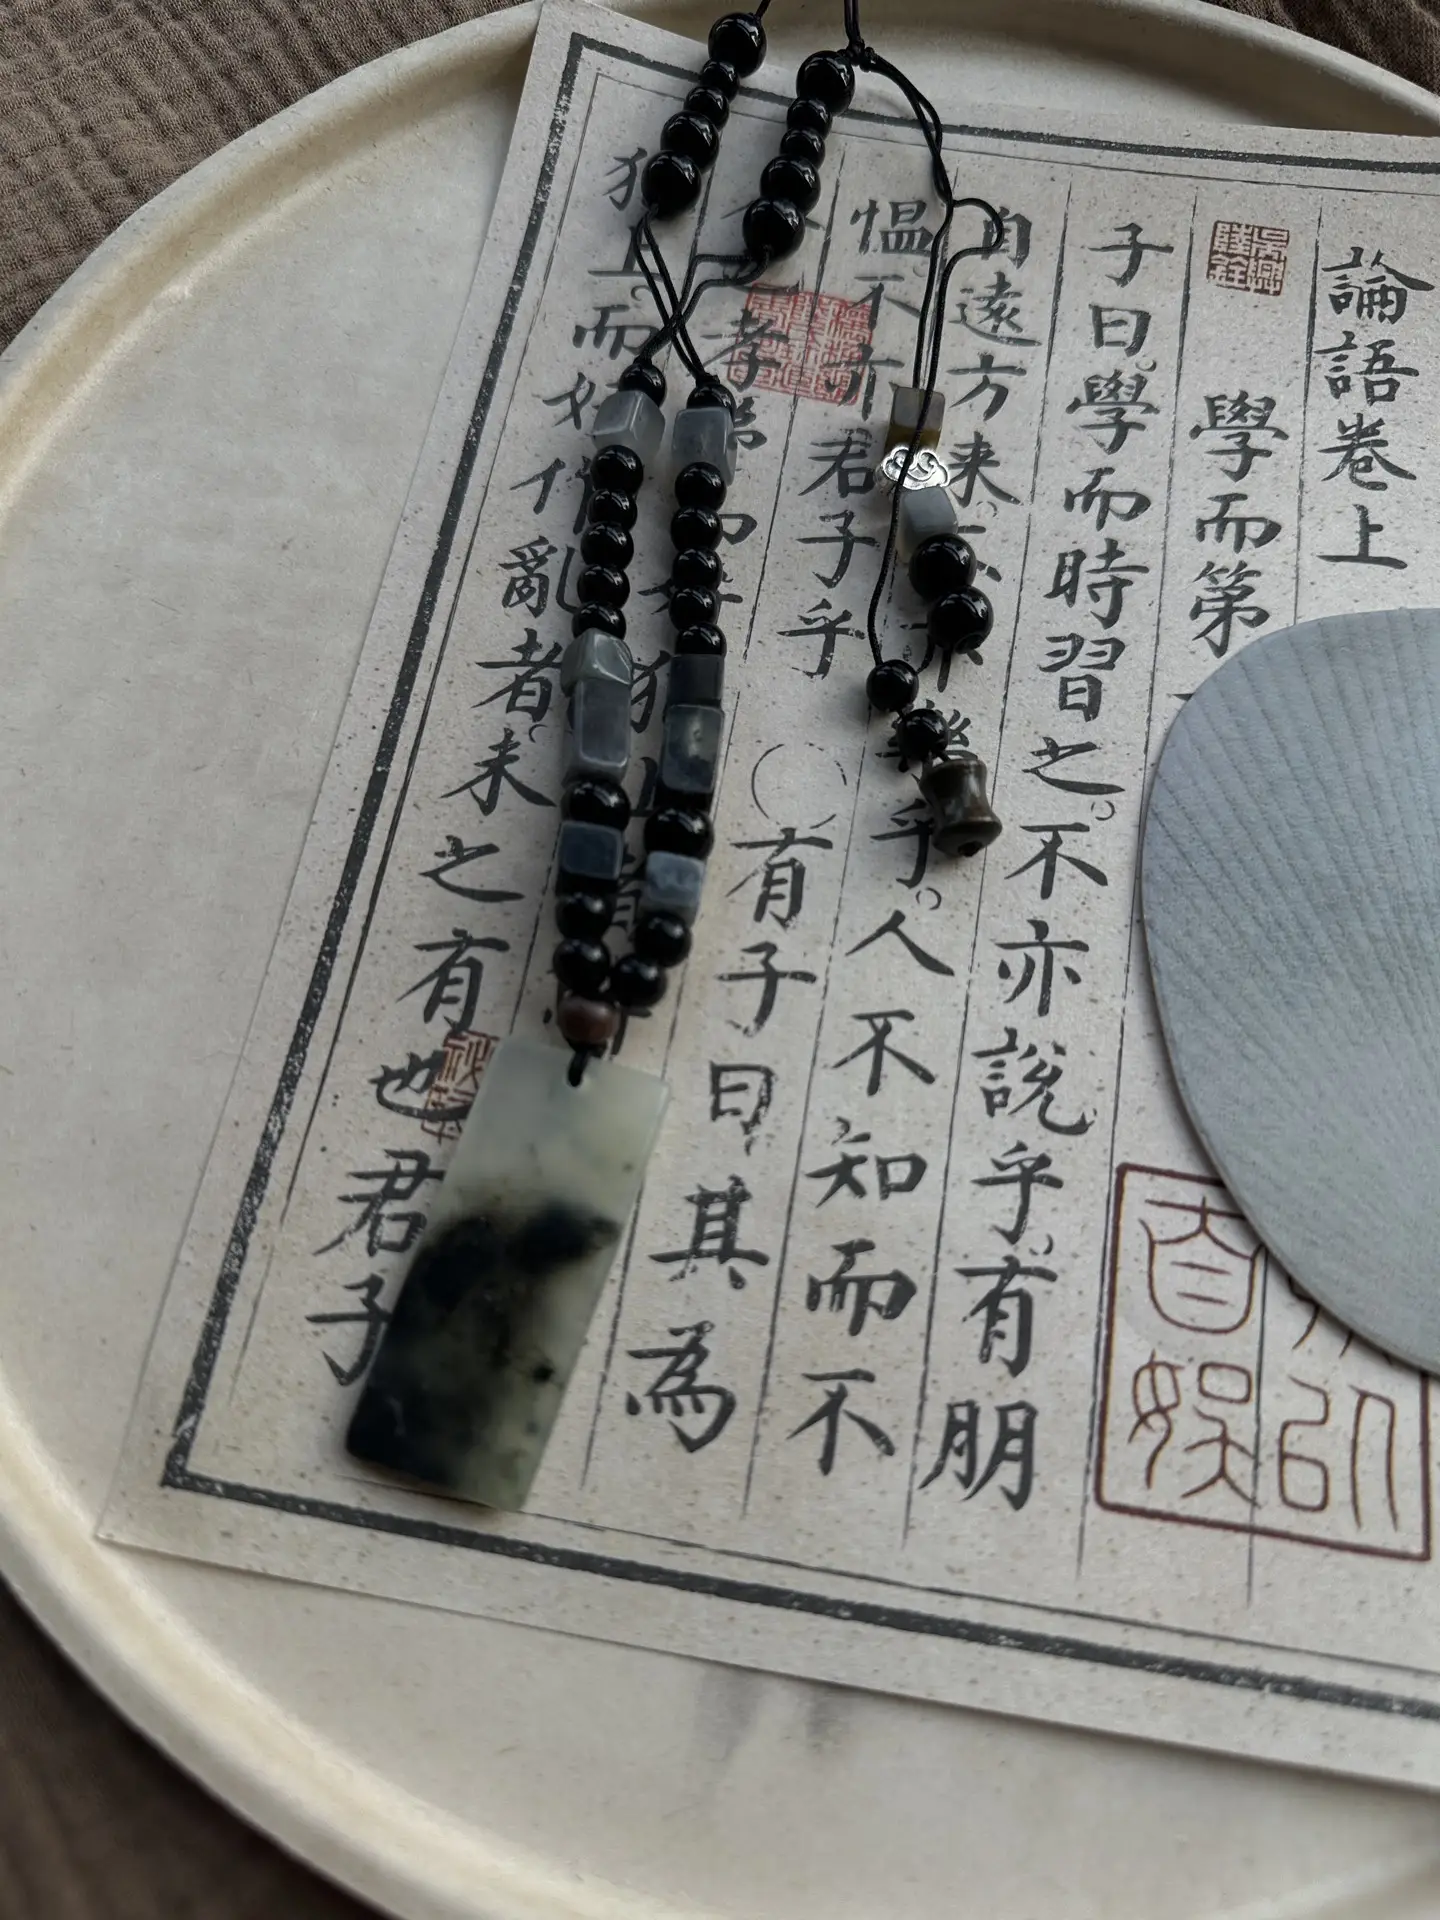 論語卷上
學而第
子曰。學而時習之。不亦說乎。有朋
自遠方来。不 樂乎。人不知而不
慍。不亦君子乎〇有子曰其為
孝弟而好犯上
犯上。而好作亂者。未之有也君子